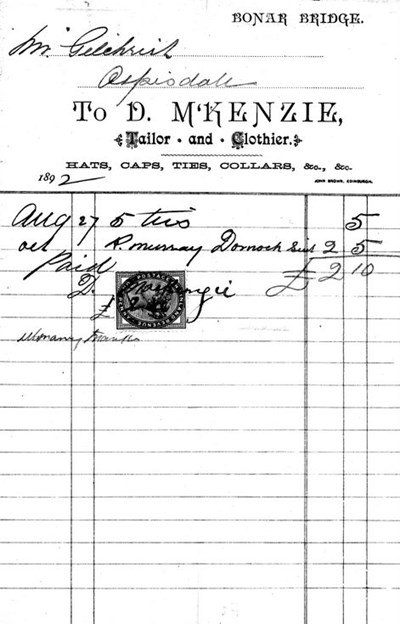 BONAR BRIDGE.
Mr Gilchrist
Ospisdale
TO D. M'KENZIE,
Tailor · and · Clothier.
HATS, CAPS, TIES, COLLARS, &c., &c.
1892
Aug 27 5 ties 5
Oct R. Murray Dornoch 2 5
Paid £2 10
D. Mackenzie
£
thanks